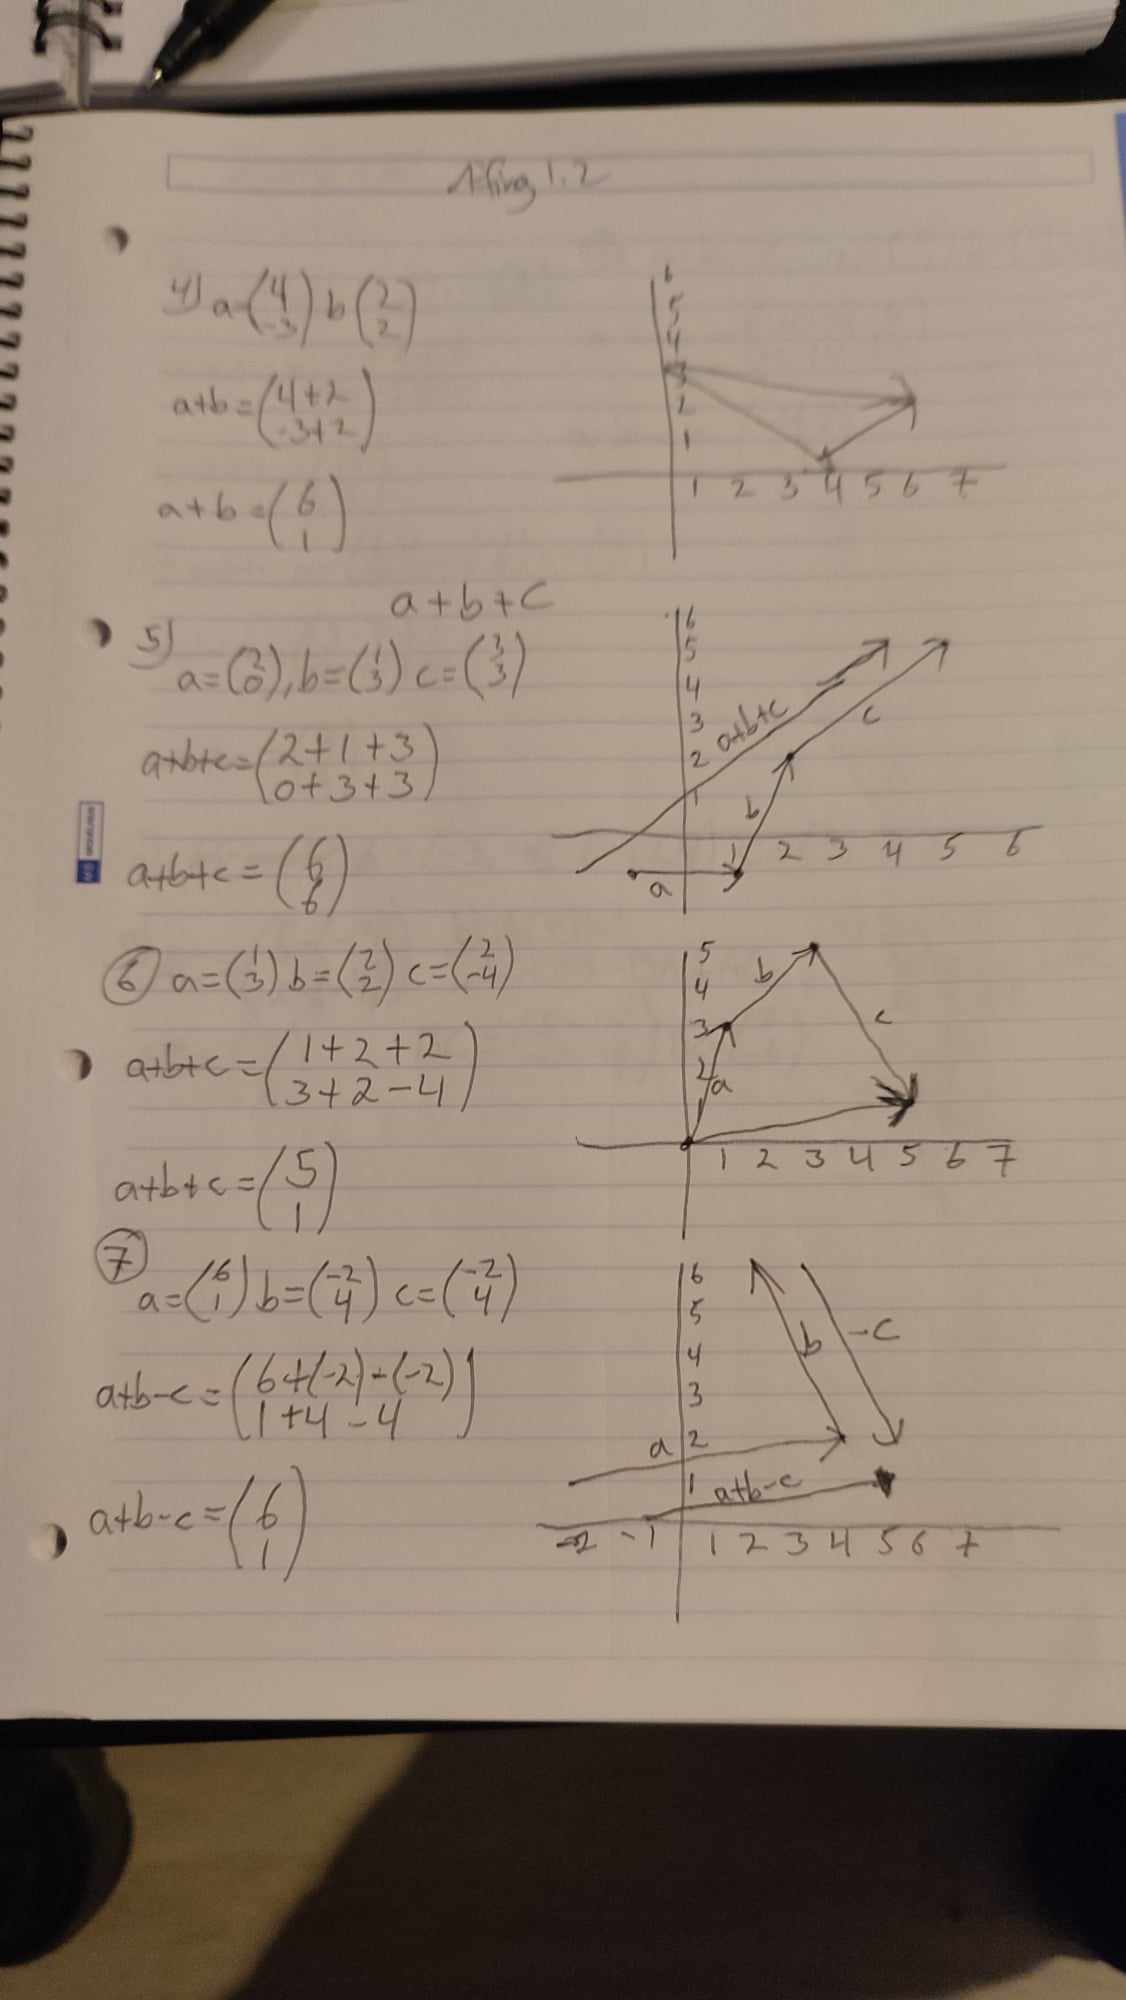 1.2
4) a=(4 -3) b(2 2)
a+b=(4+2 -3+2)
a+b=(6 1)
6
5
4
3
2
1
1 2 3 4 5 6 7
a+b+c
5)
a=(2 0), b=(1 3) c=(3 3)
a+b+c=(2+1+3 0+3+3)
a+b+c=(6 6)
6
5
4
3
2
1
a+b+c
c
b
a
1 2 3 4 5 6
6 a=(1 3) b=(2 2) c=(2 -4)
a+b+c=(1+2+2 3+2-4)
a+b+c=(5 1)
5
4
3
2
1
b
c
a
1 2 3 4 5 6 7
7
a=(6 1) b=(-2 4) c=(-2 4)
a+b-c=(6+(-2)-(-2) 1+4-4)
a+b-c=(6 1)
6
5
4
3
2
1
b
-c
a
a+b-c
-2 -1 1 2 3 4 5 6 7